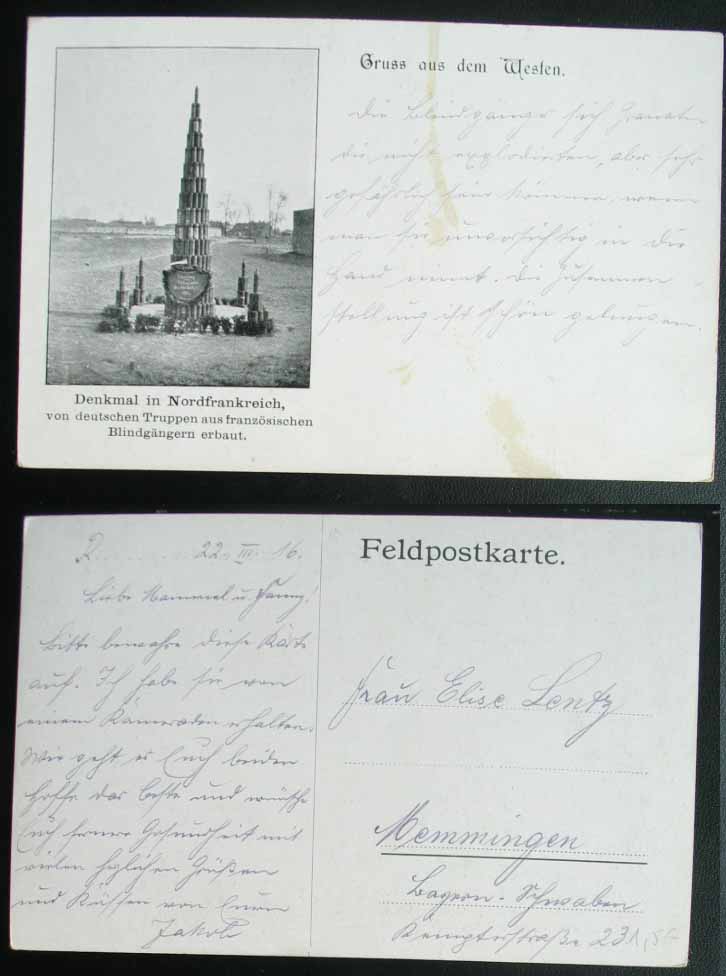 Gruss aus dem Westen.
Die Blindgänger sich Granaten
die nicht explodierten, aber sehr
gefährlich sein können, wenn
man sie unvorsichtig in die
Hand nimmt. Die Zusammen
stellung ist schön gelungen.
Denkmal in Nordfrankreich,
von deutschen Truppen aus französischen
Blindgängern erbaut.
22. III. 16.
Liebe Mammel u. Fanny!
Bitte bewahre diese Karte
auf. Ich habe sie von
einem Kameraden erhalten.
Wie geht es Euch beiden
hoffe das beste und wünsche
Euch ferner Gesundheit mit
vielen herzlichen Grüßen
und Küssen von Eurem
Jakob
Feldpostkarte.
Frau Elise Lentz
Memmingen
Bayern - Schwaben
Kempterstraße 231,